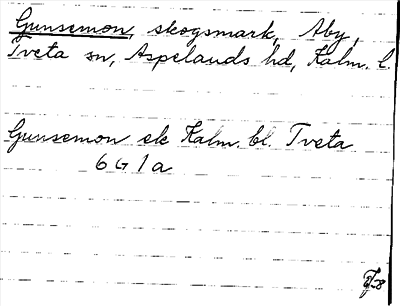 Gunsemon, skogsmark, Åby,
Tveta sn, Aspelands hd, Kalm. l.
Gunsemon ek Kalm. bl. Tveta
6G1a